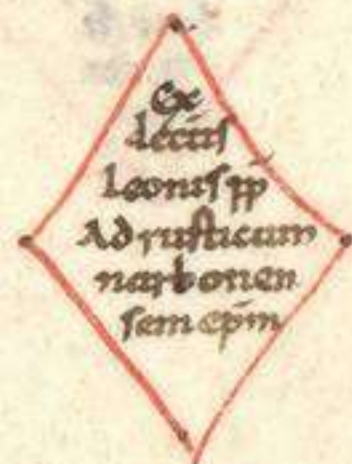 Ex
decitis
Leonis pp̄
Ad rusticum
narbonen
sem ep̄m